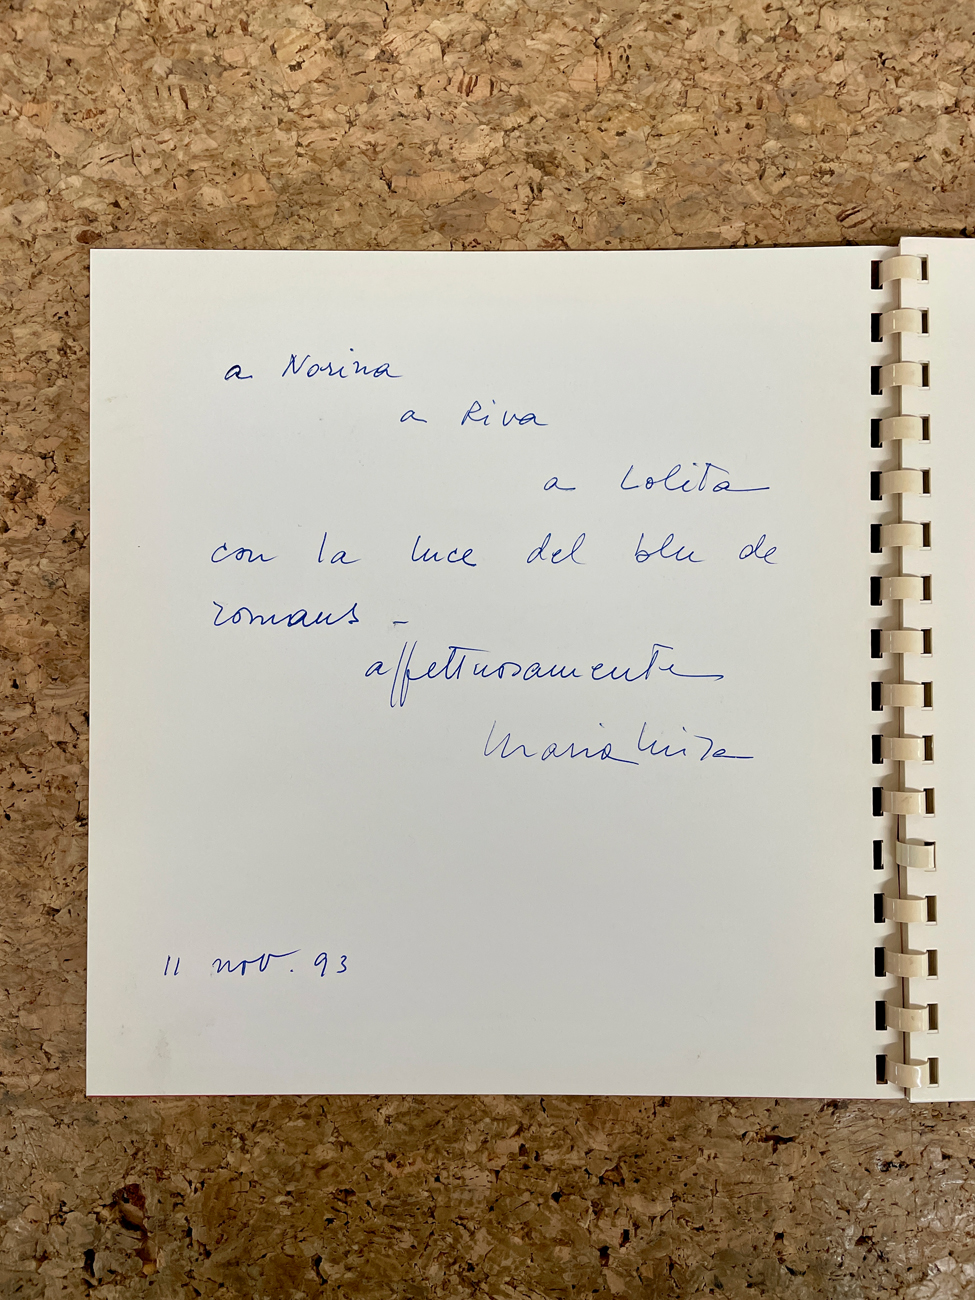 a Norina
a Riva
a Lolita
con la luce del blu de
romans -
affettuosamente
Maria Luisa
11 nov. 93